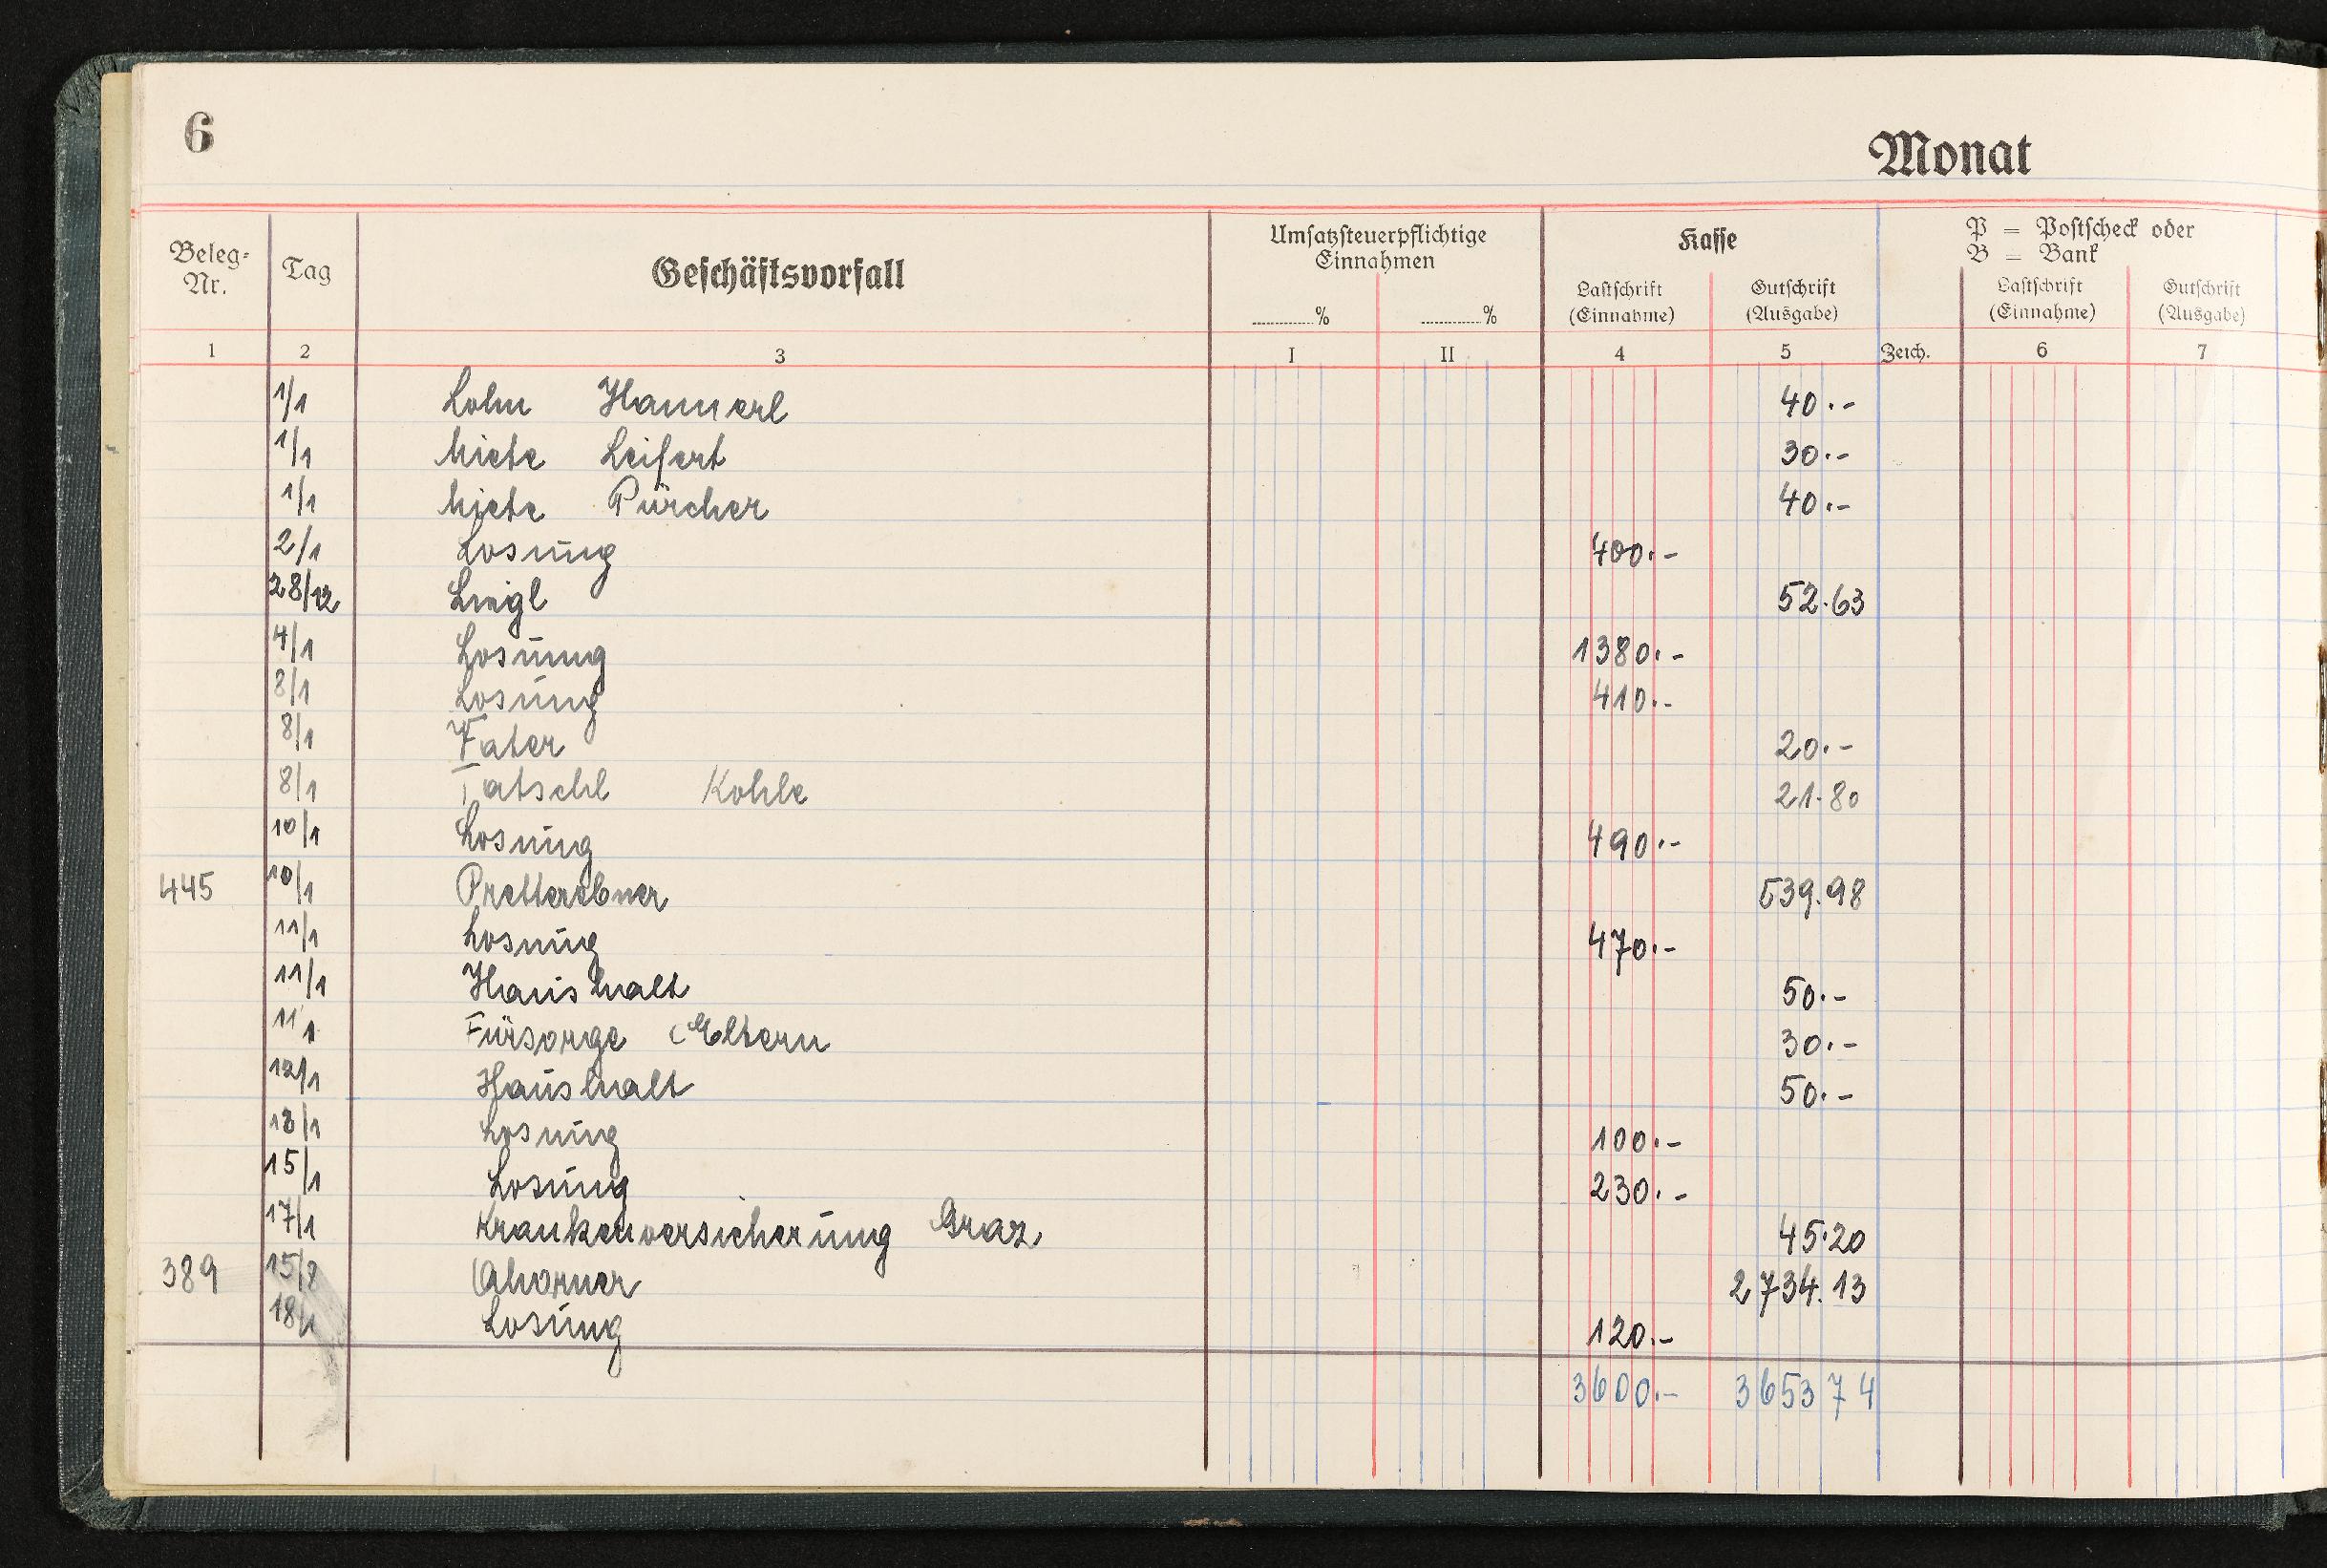 6
Monat
Beleg-Nr. Tag Geschäftsvorfall Umsatzsteuerpflichtige Einnahmen Kasse P = Postscheck oder B = Bank
......% ......% Lastschrift (Einnahme) Gutschrift (Ausgabe) Lastschrift (Einnahme) Gutschrift (Ausgabe)
1 2 3 I II 4 5 Zeich. 6 7
1/1 Lohn Hannerl 40.-
1/1 Miete Leifert 30.-
1/1 Miete Pürcher 40.-
2/1 Losung 400.-
28/12 Liegl 52.63
4/1 Losung 1380.-
8/1 Losung 410.-
8/1 Fater 20.-
8/1 Tatschl Kohle 21.80
10/1 Losung 490.-
445 10/1 Pretterebner 539.98
11/1 Losung 470.-
11/1 Haushalt 50.-
11/1 Fürsorge Eltern 30.-
12/1 Haushalt 50.-
13/1 Losung 100.-
15/1 Losung 230.-
17/1 Krankenversicherung Graz 45.20
389 15/8 Ahorner 2734.13
18/1 Losung 120.-
3600.- 3653 74